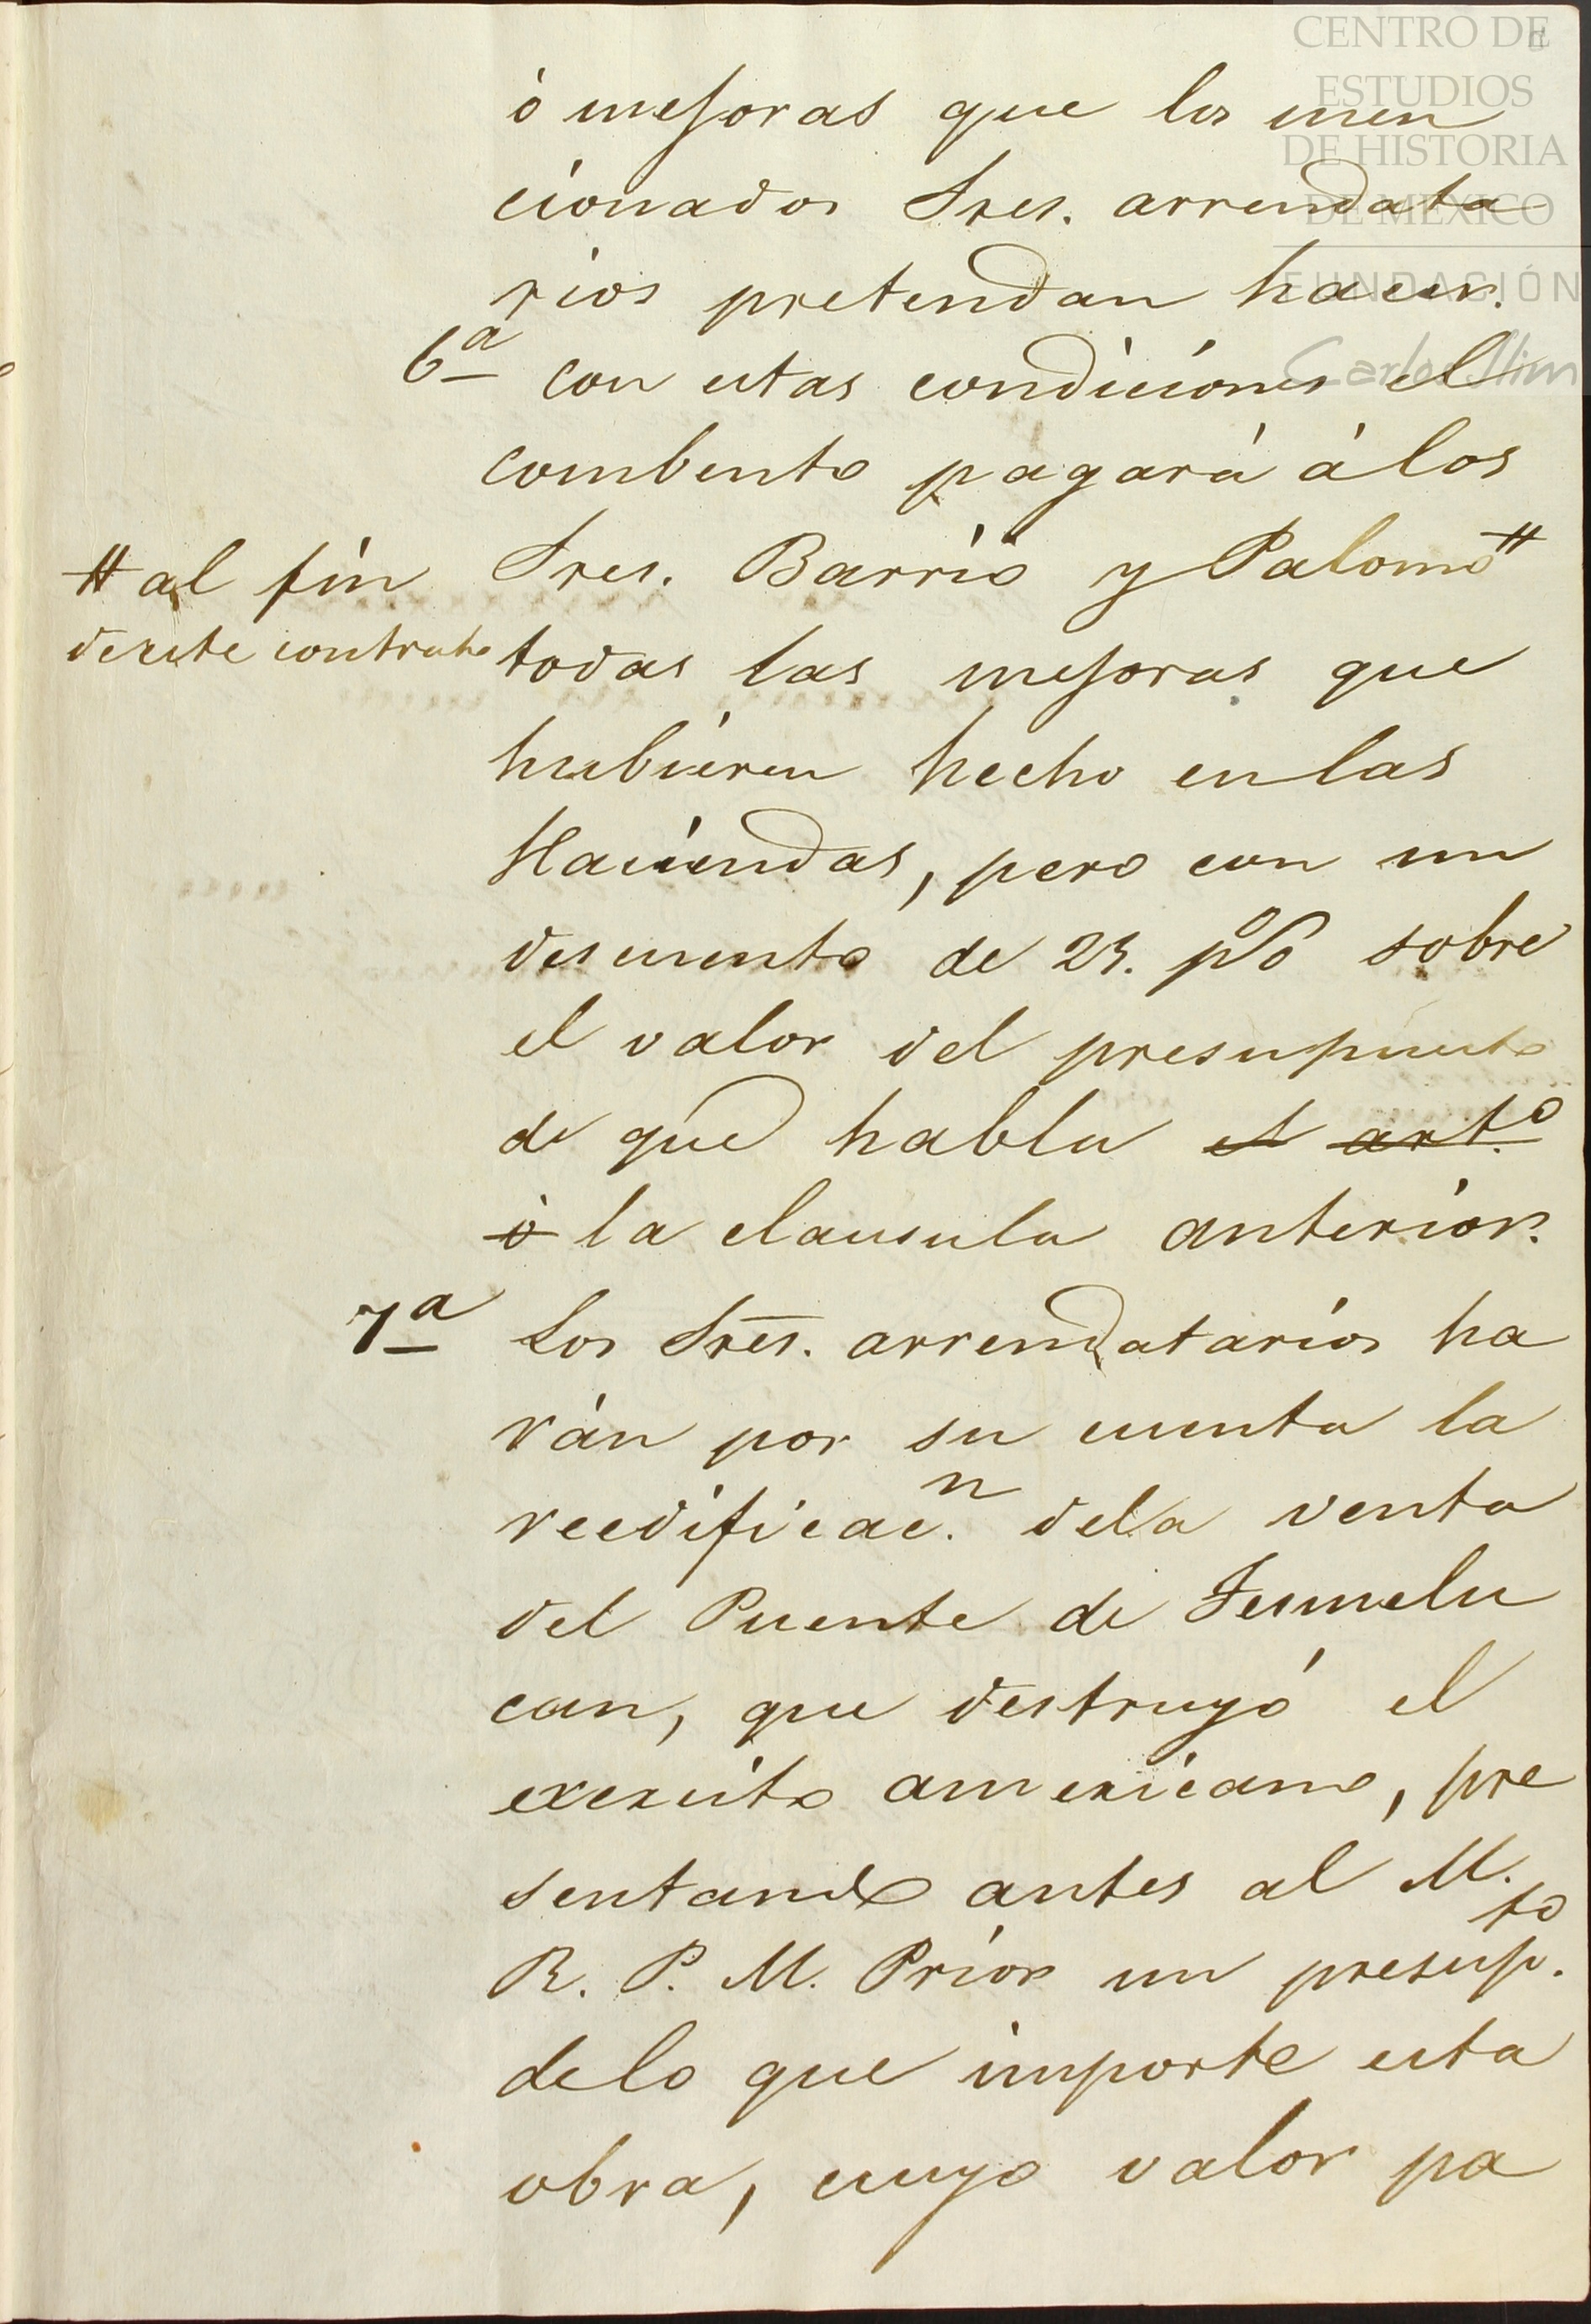 CENTRO DE
ESTUDIOS
DE HISTORIA
DE MÉXICO
FUNDACIÓN
Carlos Slim
ó mejoras que los men
cionados Sres. arrendata
rios pretendan hacer.
6ª con estas condiciones el
combento pagará á los
Sres. Barrio y Palomo #
# al fin
de este contrato
todas las mejoras que
hubieren hecho en las
Haciendas, pero con un
descuento de 25. p% sobre
el valor del presupuesto
de que habla el arto.
ó la clausula anterior.
7ª Los Sres. arrendatarios ha
rán por su cuenta la
reedificacn. dela venta
del Puente de Tesmelu
can, que destruyó el
exercito americano, pre
sentando antes al M.
R. P. M. Prior un presupto.
delo que importe esta
obra, cuyo valor pa